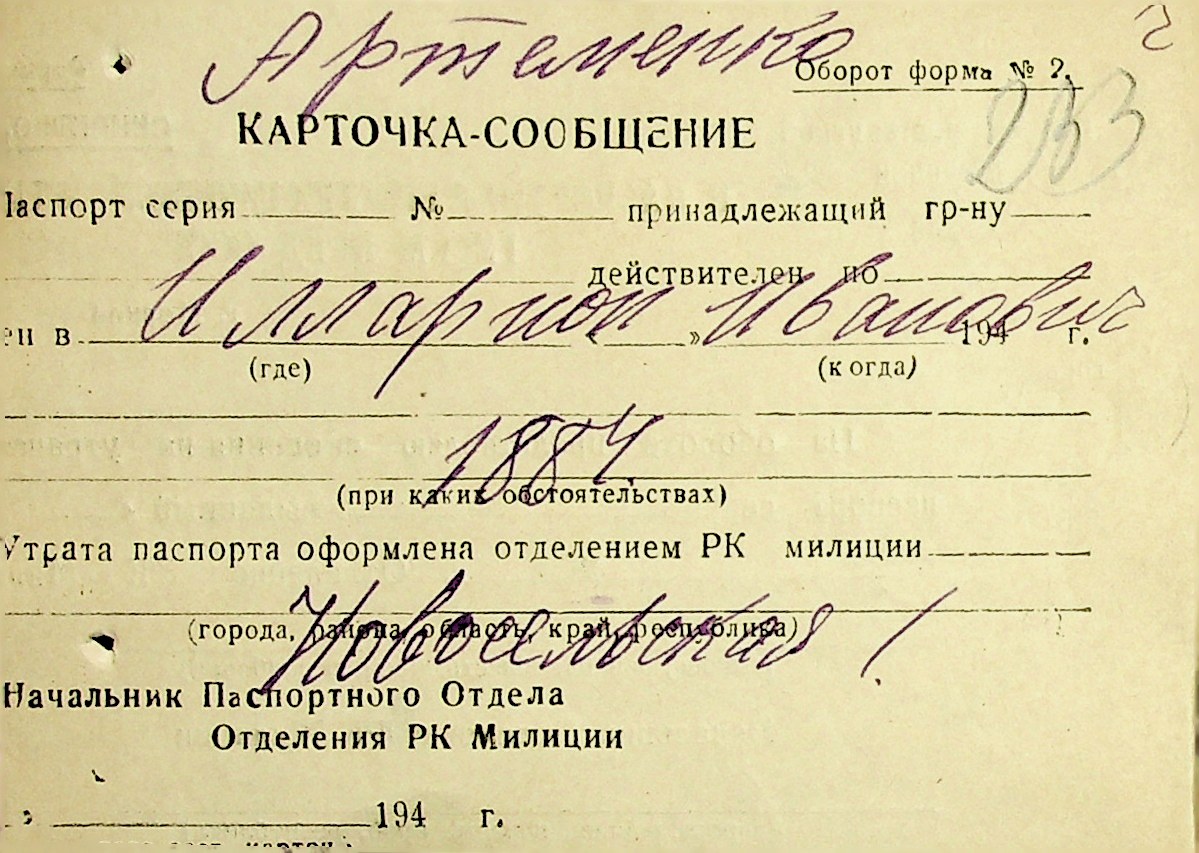 Артеменко
Оборот форма № 2.
233
КАРТОЧКА-СООБЩЕНИЕ
Паспорт серия № принадлежащий гр-ну
действителен по
Илларион Иванович
ен в « » 194 г.
(где) (когда)
1884
(при каких обстоятельствах)
Утрата паспорта оформлена отделением РК милиции
Новосельская 1
(города, района, область, край, республика)
Начальник Паспортного Отдела
Отделения РК Милиции
194 г.